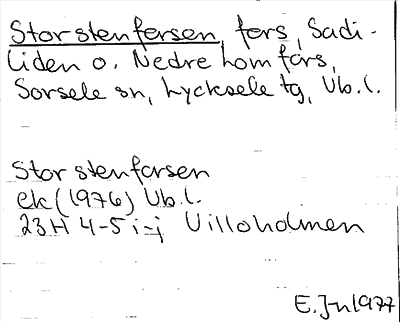 Storstenforsen, fors, Sadi-
liden o. Nedre homfors,
Sorsele sn, Lycksele tg, Vb.l.
Storstenforsen
ek (1976) Vb.l.
23H 4-5 i-j Villoholmen
E. Jn 1977